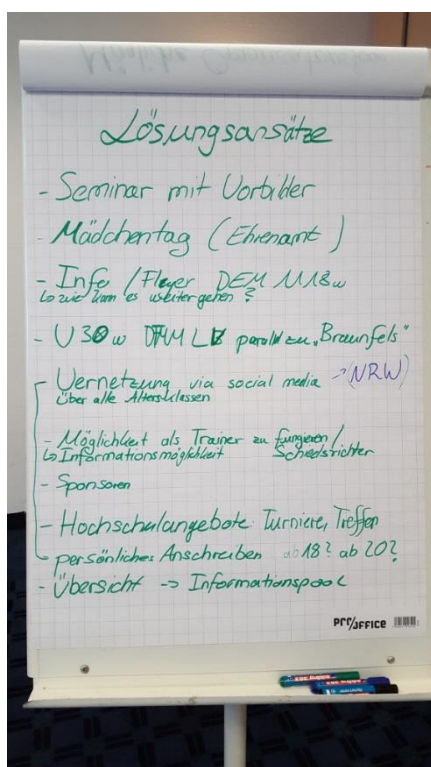 Lösungsansätze
- Seminar mit Vorbilder
- Mädchentag (Ehrenamt)
- Info / Flyer DEM U18w
↳ wie kann es weitergehen?
- U30w LV parallel zu „Braunfels"
- Vernetzung via social media → (NRW)
über alle Altersklassen
- Möglichkeit als Trainer zu fungieren /
↳ Informationsmöglichkeit Schiedsrichter
- Sponsoren
- Hochschulangebote: Turniere, Treffen
persönliches Anschreiben ab 18? ab 20?
- Übersicht -> Informationspool
PRO/OFFICE